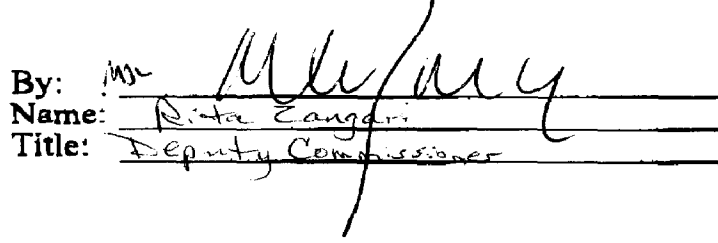 By:
Name: Rita Zangari
Title: Deputy Commissioner